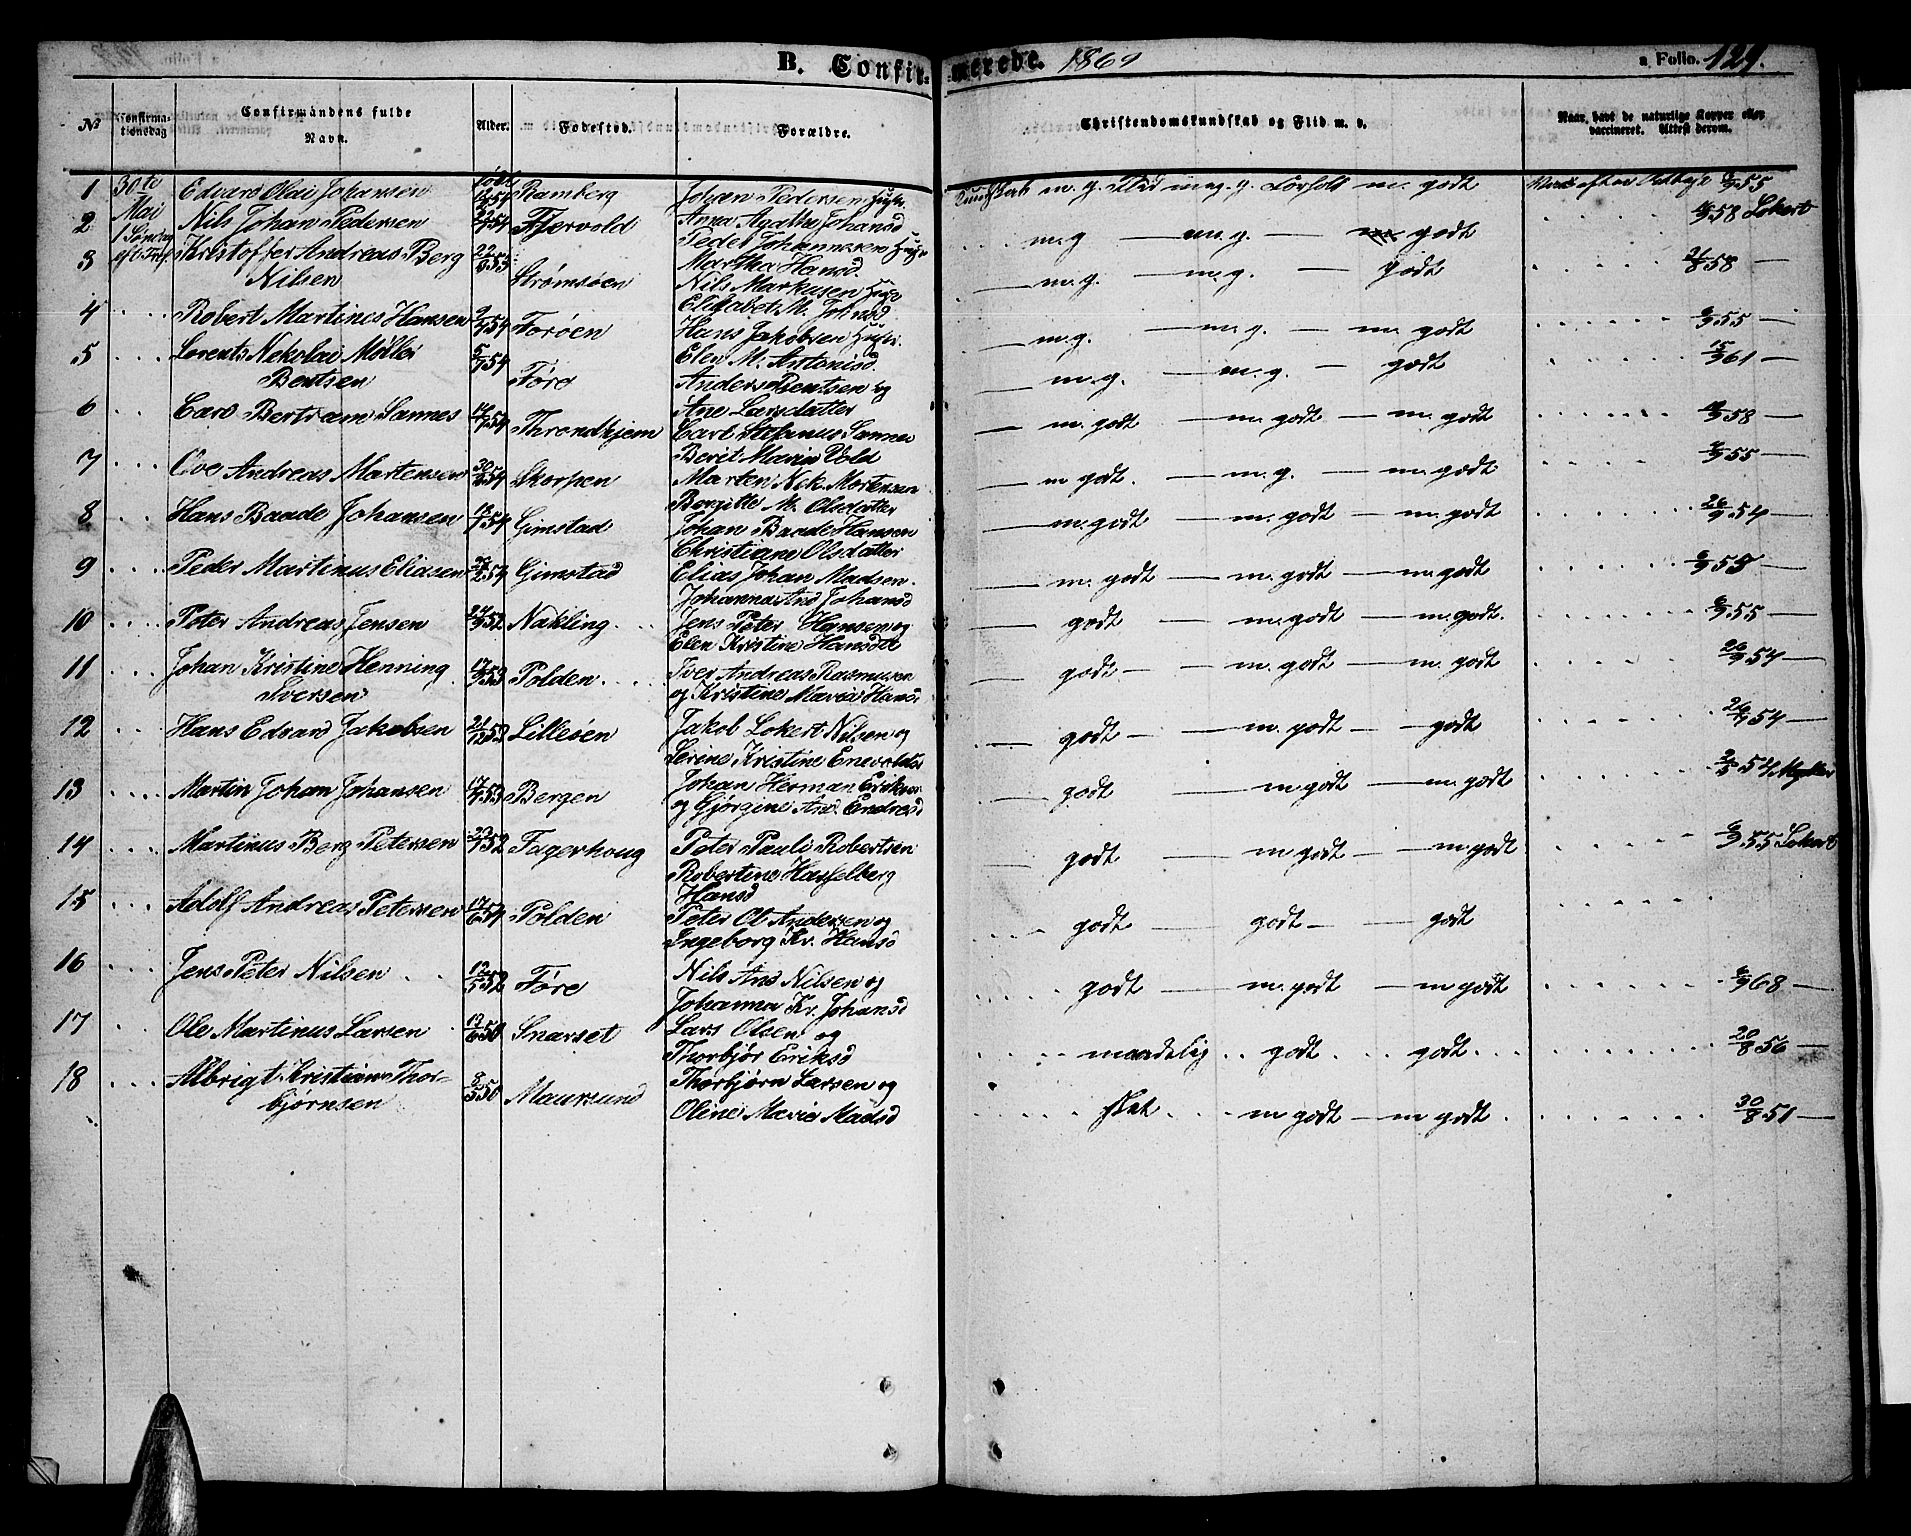 B. Confirmerede. 1869
a Folio. 129.
№ Confirmationsdag Confirmandens fulde Navn. Alder. Fødested. Forældre. Christendomskundskab og Flid m. v. Naar, havt de naturlige Kopper eller vaccineret. Attest derom.
1 30te Mai Edvard Olai Johansen født 54 Ramberg Johan Pedersen Hustr. Anna Agatha Johansd Kundskab m. g. Flid meg. g. Forhold m. godt 55
2 1 Søndag eft Tref Nils Johan Pedersen 54 Fjervold Peder Johannesen Hustr Martha Hansd. m. g — m. g. — godt 58 Lokert
3 Kristoffer Andreas Berg Nilsen 22 53 Strømsøen Nils Markusen Hust Elisabet M. Johnsd m. g. — m. g. — godt 21/8 58 —
4 Robert Martinus Hansen 54 Forøen Hans Jakobsen Hustr. Elen M. Antonisd m. g. — m. g. — m. godt 55 —
5 Lorents Nekolai Möller Bentsen 54 Føre Anders Bentsen og Ane Larsdatter m. g. — m. g. — godt 15/9 61 —
6 Carl Bertram Sannes 54 Throndhjem Carl Stefanus Sannes Berit Marie Vold m. godt — m. godt — m. godt 58 —
7 Ove Andreas Martensen 30 54 Skorpen Marten Nek. Mortensen Borgitte M. Olsdatter m godt. — m. g. — m. godt 55 —
8 Hans Baade Johansen 18/7 54 Gimstad Johan Baade Hansen Christiane Olsdatter m. godt — m. godt — m. godt 26/9 54 —
9 Peder Martinus Eliasen 54 Gimstad Elias Johan Madsen. Johanna And Johansd m. godt — m. godt — m. godt 55 —
10 Peter Andreas Jensen 24 52 Nakling Jens Peter Hansen og Elen Kristine Hansdt godt — m. godt — m. godt. 55 —
11 Johan Kristine Henning Iversen 17 53 Polden Iver Andreas Rasmussen og Kristine Maria Hansd godt — m. godt — m. godt 26/9 54 —
12 Hans Edvard Jakobsen 21/12 52 Lilleøen Jakob Lokert Nilsen og Serine Kristine Enevoldsd godt — m. godt — godt 26/9 54 —
13 Martin Johan Johansen 17/7 53 Bergen Johan Herman Eriksen og Gjørgine And. Endresd godt — m. godt — m. godt 54 Møller
14 Martinus Berg Petersen 23 52 Fagerhoug Peter Pauli Robertsen Robertine Hasselberg Hansd godt — m. godt — m. godt 55 Lokert
15 Adolf Andreas Petersen 17/6 54 Polden Peter Ol Andersen og Ingeborg Kr. Hansd godt — godt — godt
16 Jens Peter Nilsen 52 Føre Nils And Nilsen og Johanna Kr. Johansd godt — m. godt — m godt 68 —
17 Ole Martinus Larsen 50 Snarset Lars Olsen og Thorbjør Eriksd maadelig godt godt 20/8 56 —
18 Albrigt Kristian Thorbjørnsen 50 Maursund Thorbjørn Larsen og Oline Maria Madsd slet m godt — m godt 30/8 51 —